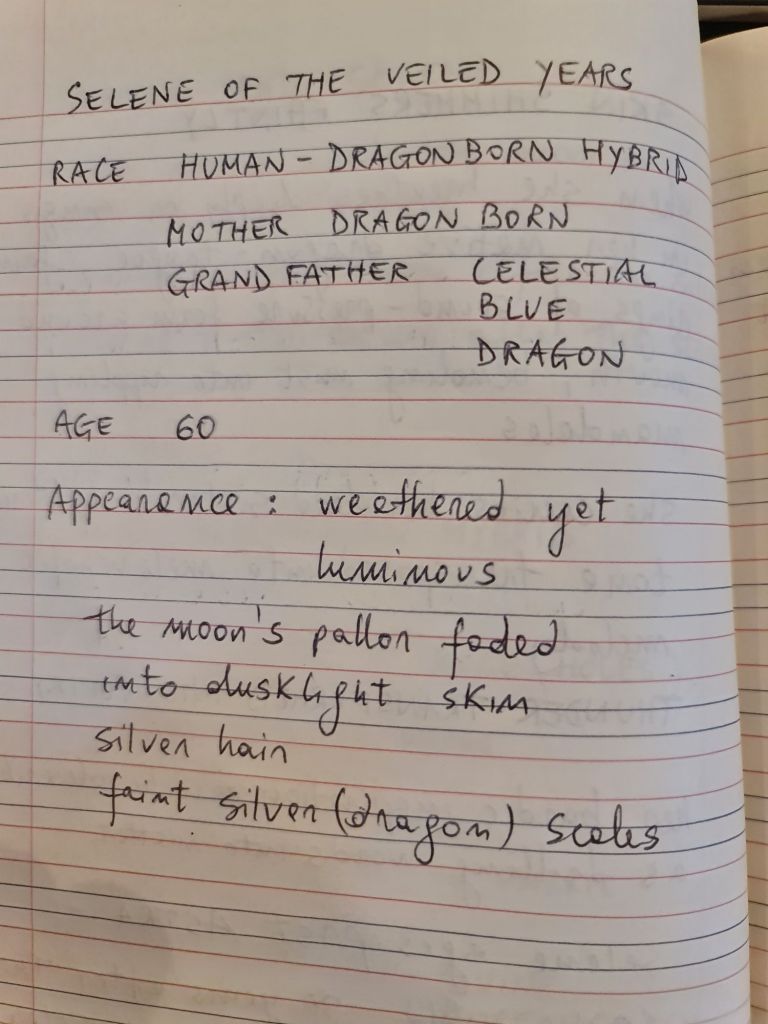 SELENE OF THE VEILED YEARS
RACE HUMAN - DRAGONBORN HYBRID
MOTHER DRAGON BORN
GRAND FATHER CELESTIAL
BLUE
DRAGON
AGE 60
Appearance : weathered yet
luminous
the moon's pallor faded
into dusklight skin
silver hair
faint silver (dragon) scales